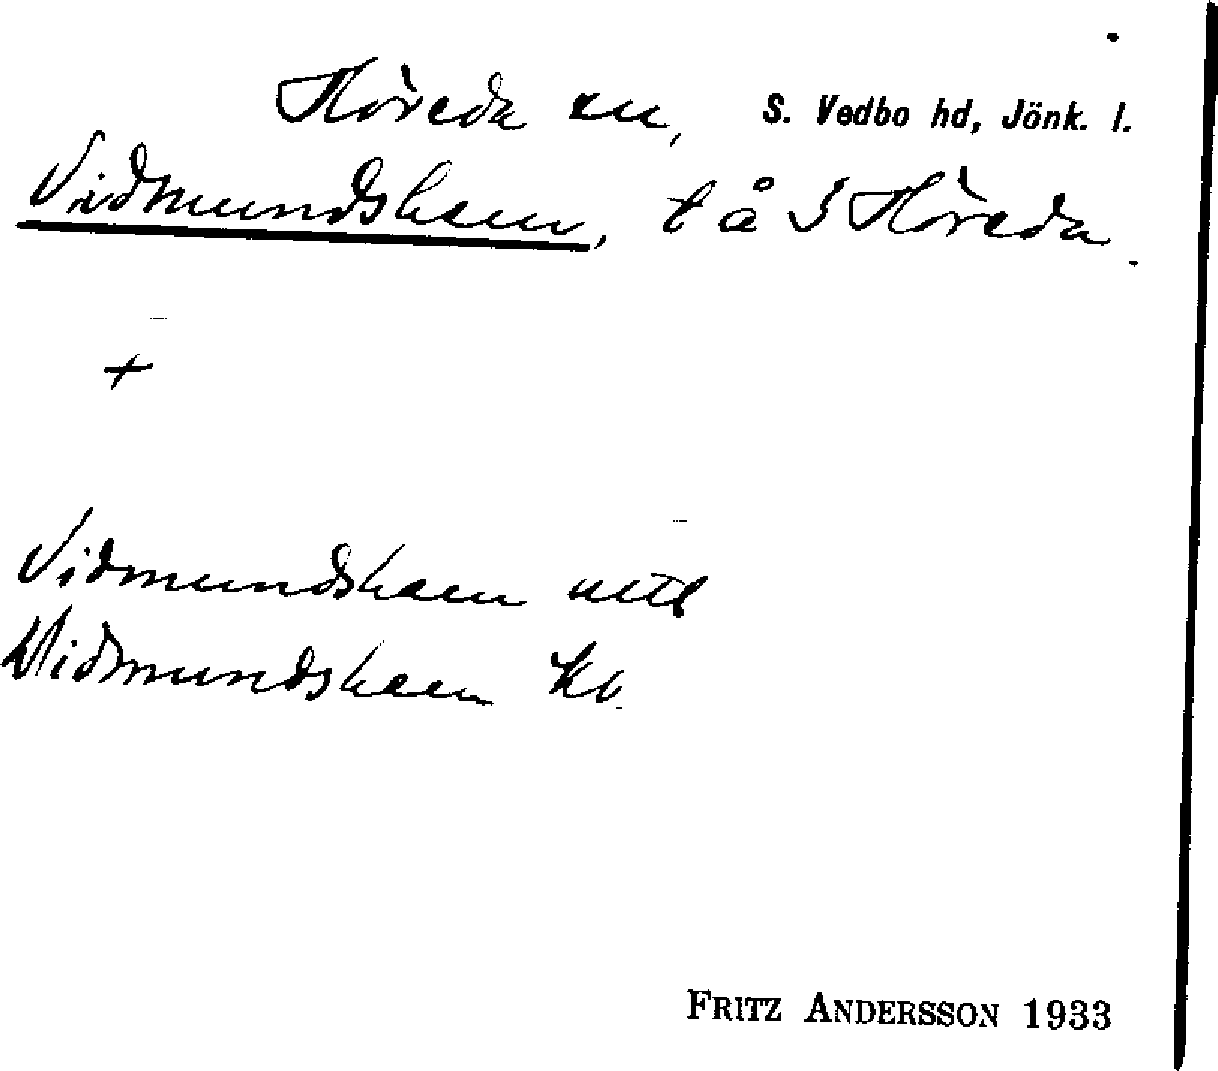 Höreda sn, S. Vedbo hd, Jönk. l.
Vidmundshem, t å S Höreda
+
Vidmundshem uttl
Widmundshem Kb
FRITZ ANDERSSON 1933